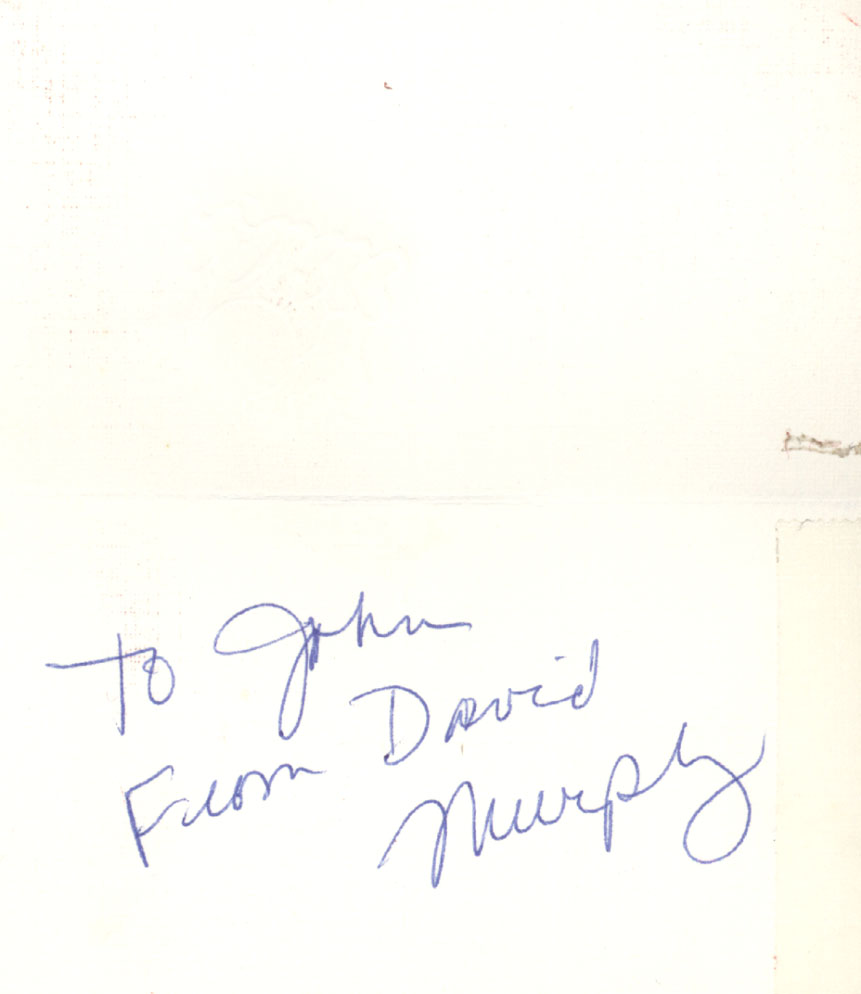 To John
From David
Murphy